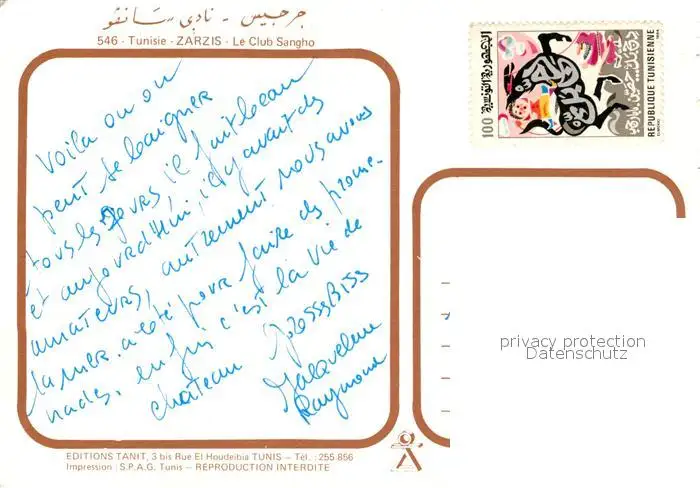 جرجيس - نادي سانغو
546 - Tunisie - ZARZIS - Le Club Sangho
Voila ou on
peut se baigner
tous les jours, il fait beau
et aujourd'hui, il y avait des
amateurs, autrement nous avons
la mer à côté pour faire des prome-
nades, enfin c'est la vie de
château Grosses Biss
Jacqueline
Raymond
100
الجمهورية التونسية
REPUBLIQUE TUNISIENNE
privacy protection
Datenschutz
EDITIONS TANIT, 3 bis Rue El Houdeibia TUNIS - Tél. : 255.856
Impression : S.P.A.G. Tunis - REPRODUCTION INTERDITE